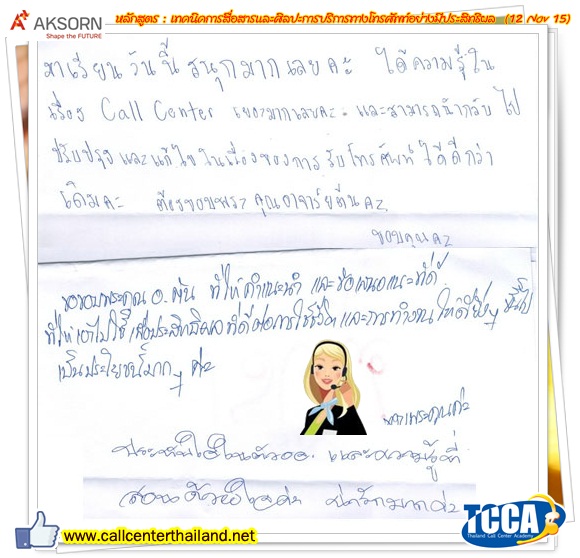 AKSORN
Share the FUTURE
หลักสูตร : เทคนิคการสื่อสารและศิลปะการบริการทางโทรศัพท์อย่างมีประสิทธิผล (12 Nov 15)
มาเรียนวันนี้ สนุกมากเลยคะ ได้ความรู้ใน
เรื่อง Call Center เยอะมากเลยคะ และสามารถนำกลับไป
ปรับปรุงและแก้ไขในเรื่องของการรับโทรศัพท์ได้ดีกว่า
เดิมคะ ต้องขอบพระคุณอาจารย์ตื่นคะ
ขอบคุณคะ
ขอขอบพระคุณ อ. ที่ให้คำแนะนำ และข้อเสนอแนะที่ดี
ที่ให้เอาไปใช้ เพื่อประสิทธิผลที่ดีต่อการใช้ชีวิต และการทำงานให้ดียิ่งๆ ขึ้นไป
เป็นประโยชน์มากๆ ค่ะ
ขอบพระคุณค่ะ
ประทับใจในตัวอ. และความรู้ที่
สอน น่ารักมากค่ะ
www.callcenterthailand.net
TCCA
Thailand Call Center Academy